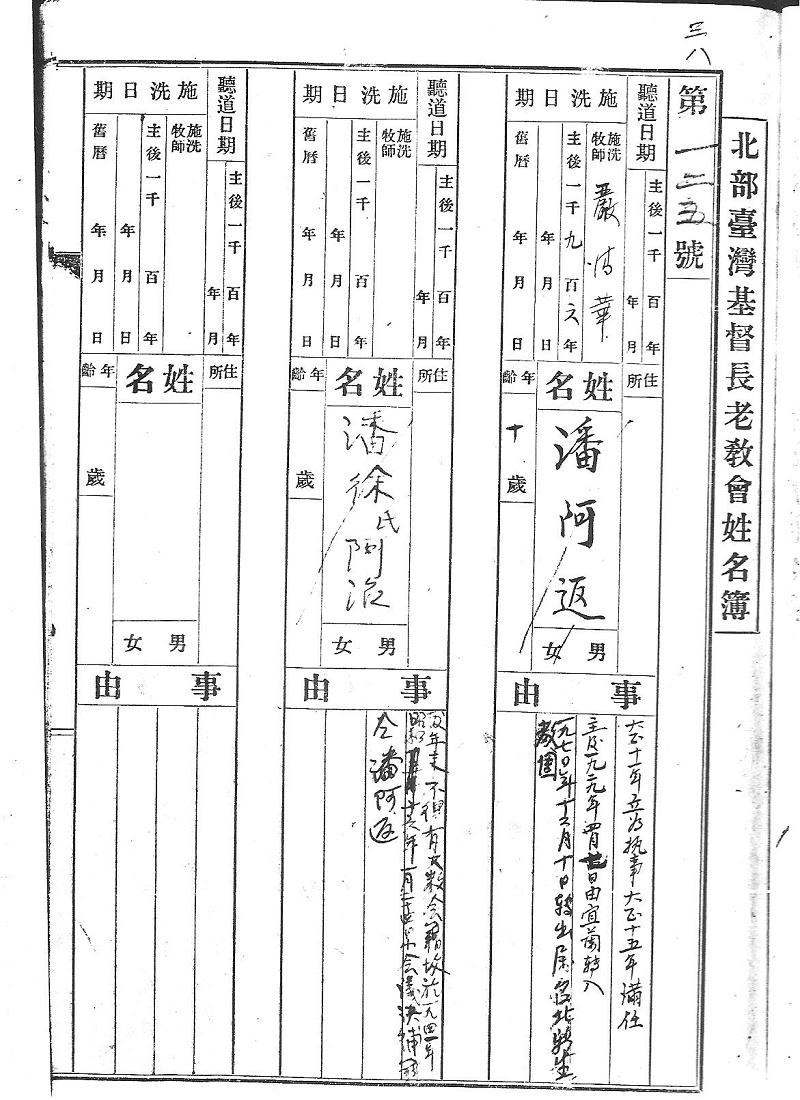 三八
北部臺灣基督長老教會姓名簿
第一二五號
聽道日期
主後一千 百 年
年 月
施洗日期
施洗牧師 嚴清華
主後一千九百六年
年 月 日
舊曆 年 月 日
住所
姓名
潘阿返
男 女
年齡
十歲
事由
大正十一年立為執事大正十五年滿任
主后一九二九年四月 日由宜蘭轉入
一九七〇年十二月十日轉出居台北
聽道日期
主後一千 百 年
年 月
施洗日期
施洗牧師
主後一千 百 年
年 月 日
舊曆 年 月 日
住所
姓名
潘徐氏阿
男 女
年齡
歲
事由
年末不得有教會籍故於一九四一年
昭和十六年一月 會議決補
仝潘阿返
聽道日期
主後一千 百 年
年 月
施洗日期
施洗牧師
主後一千 百 年
年 月 日
舊曆 年 月 日
住所
姓名
男 女
年齡
歲
事由